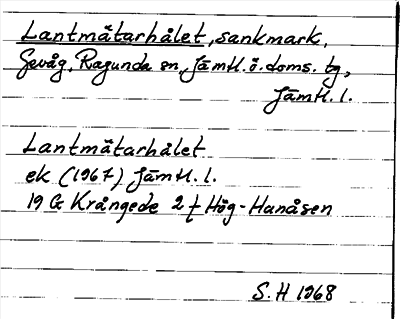 Lantmätarhålet, sankmark,
Gevåg, Ragunda sn, Jämtl. ö. doms. tg,
Jämtl. l.
Lantmätarhålet
ek (1967) Jämtl. l.
19 G Krångede 2 f Hög-Hanåsen
S. H 1968